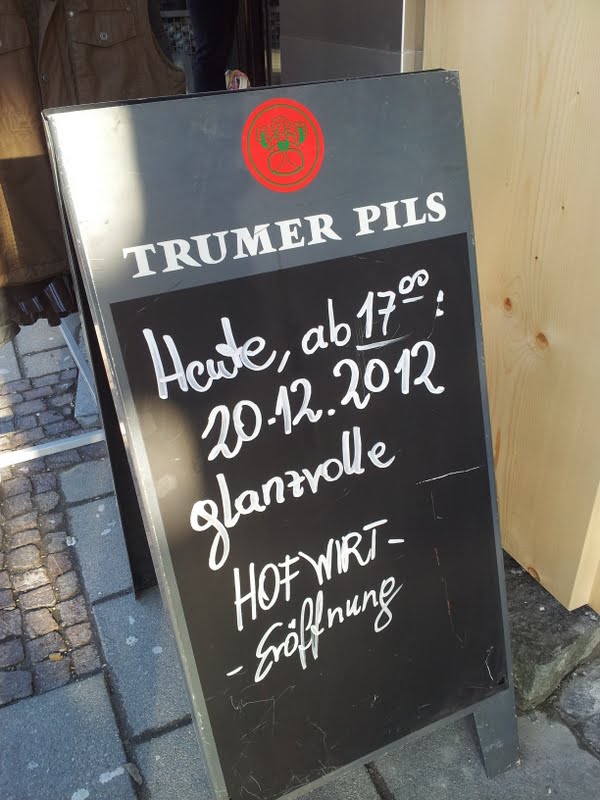 TRUMER PILS
Heute, ab 17⁰⁰:
20.12.2012
glanzvolle
HOFWIRT-
-Eröffnung